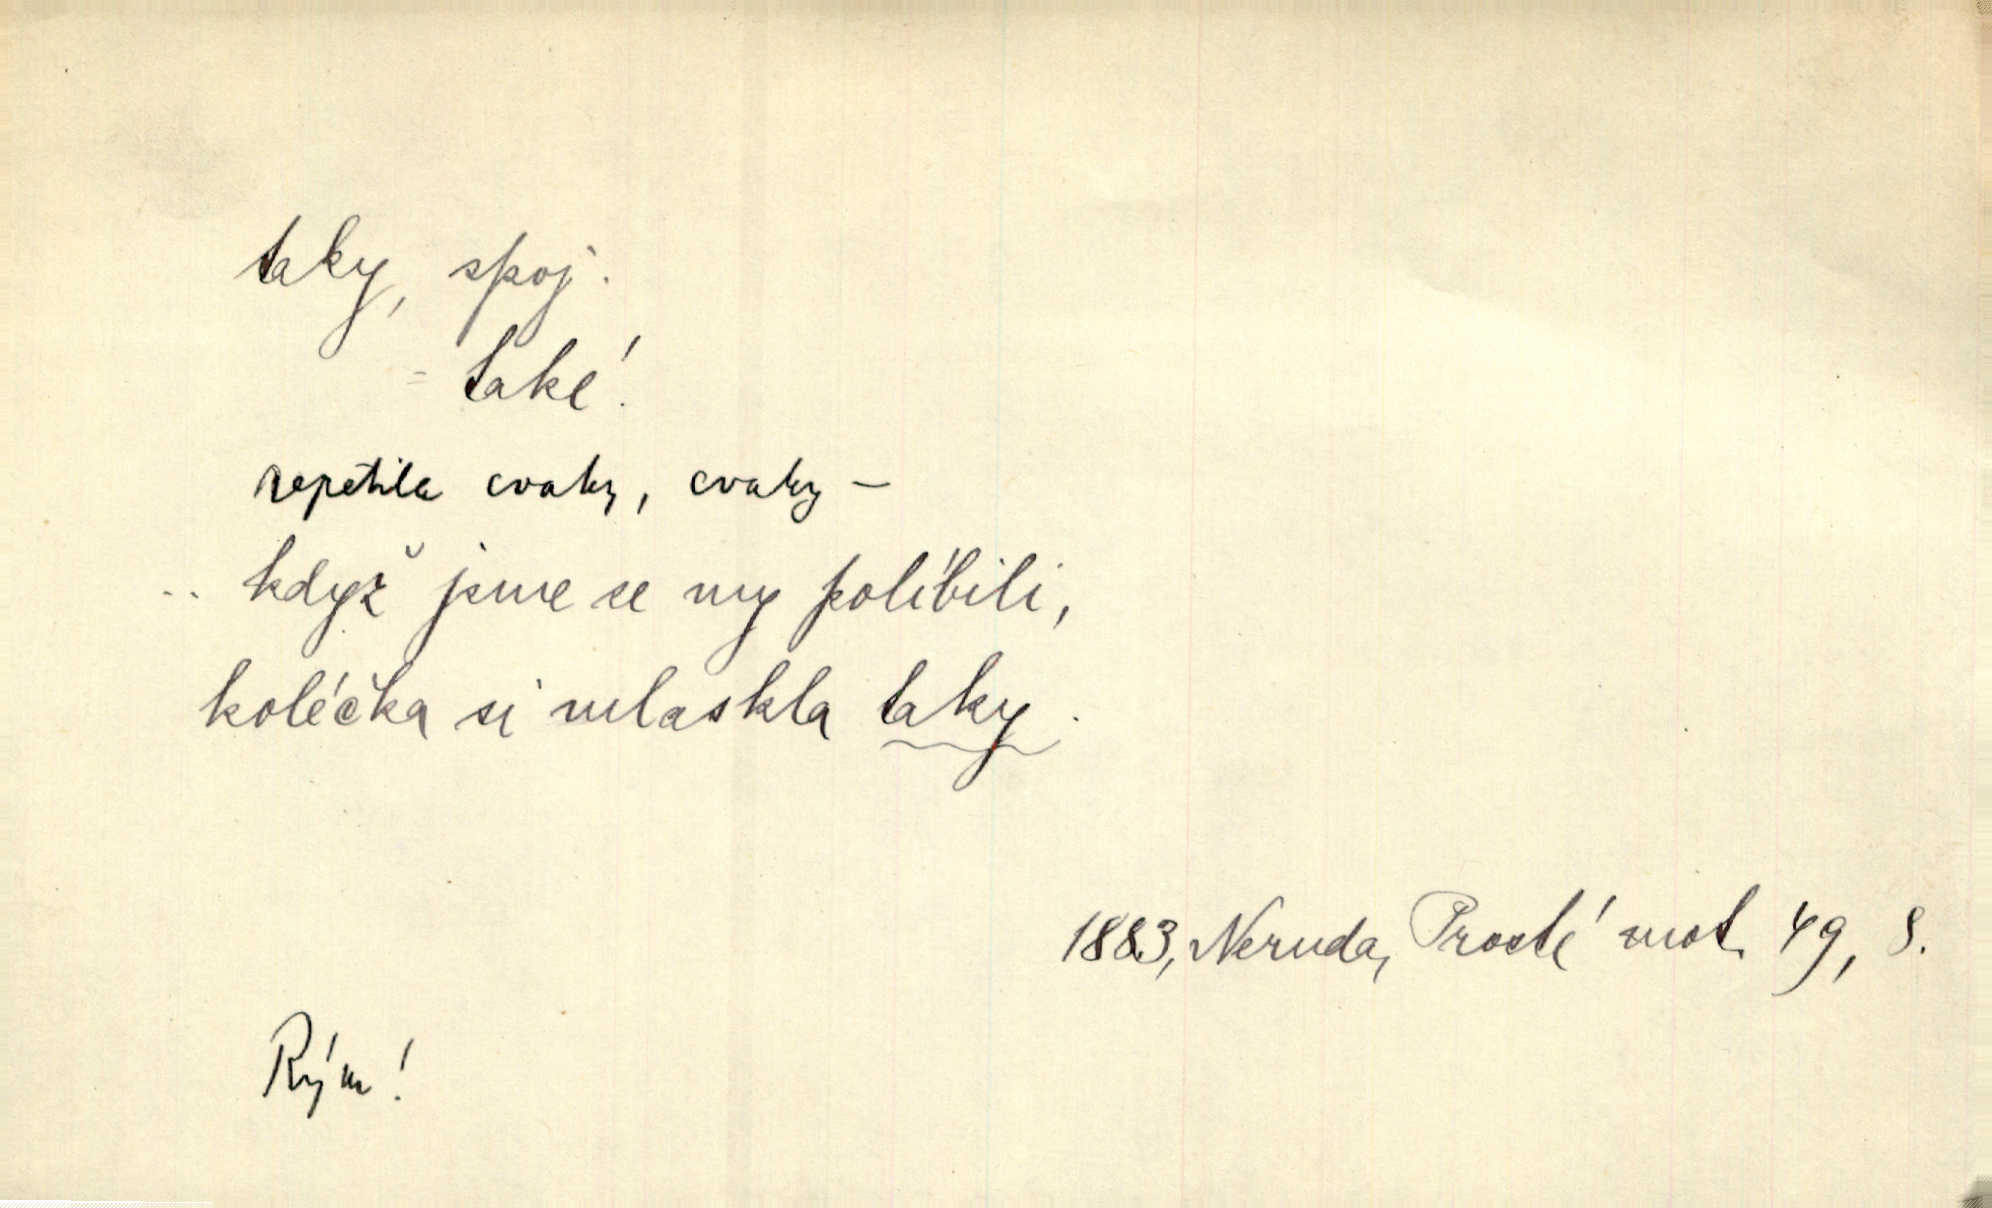 taky, spoj.
= také.
repetila cvaky, cvaky –
.. když jsme se my políbili,
kolečka si mlaskla taky.
1883, Neruda, Prosté mot. 49, 8.
Rým!